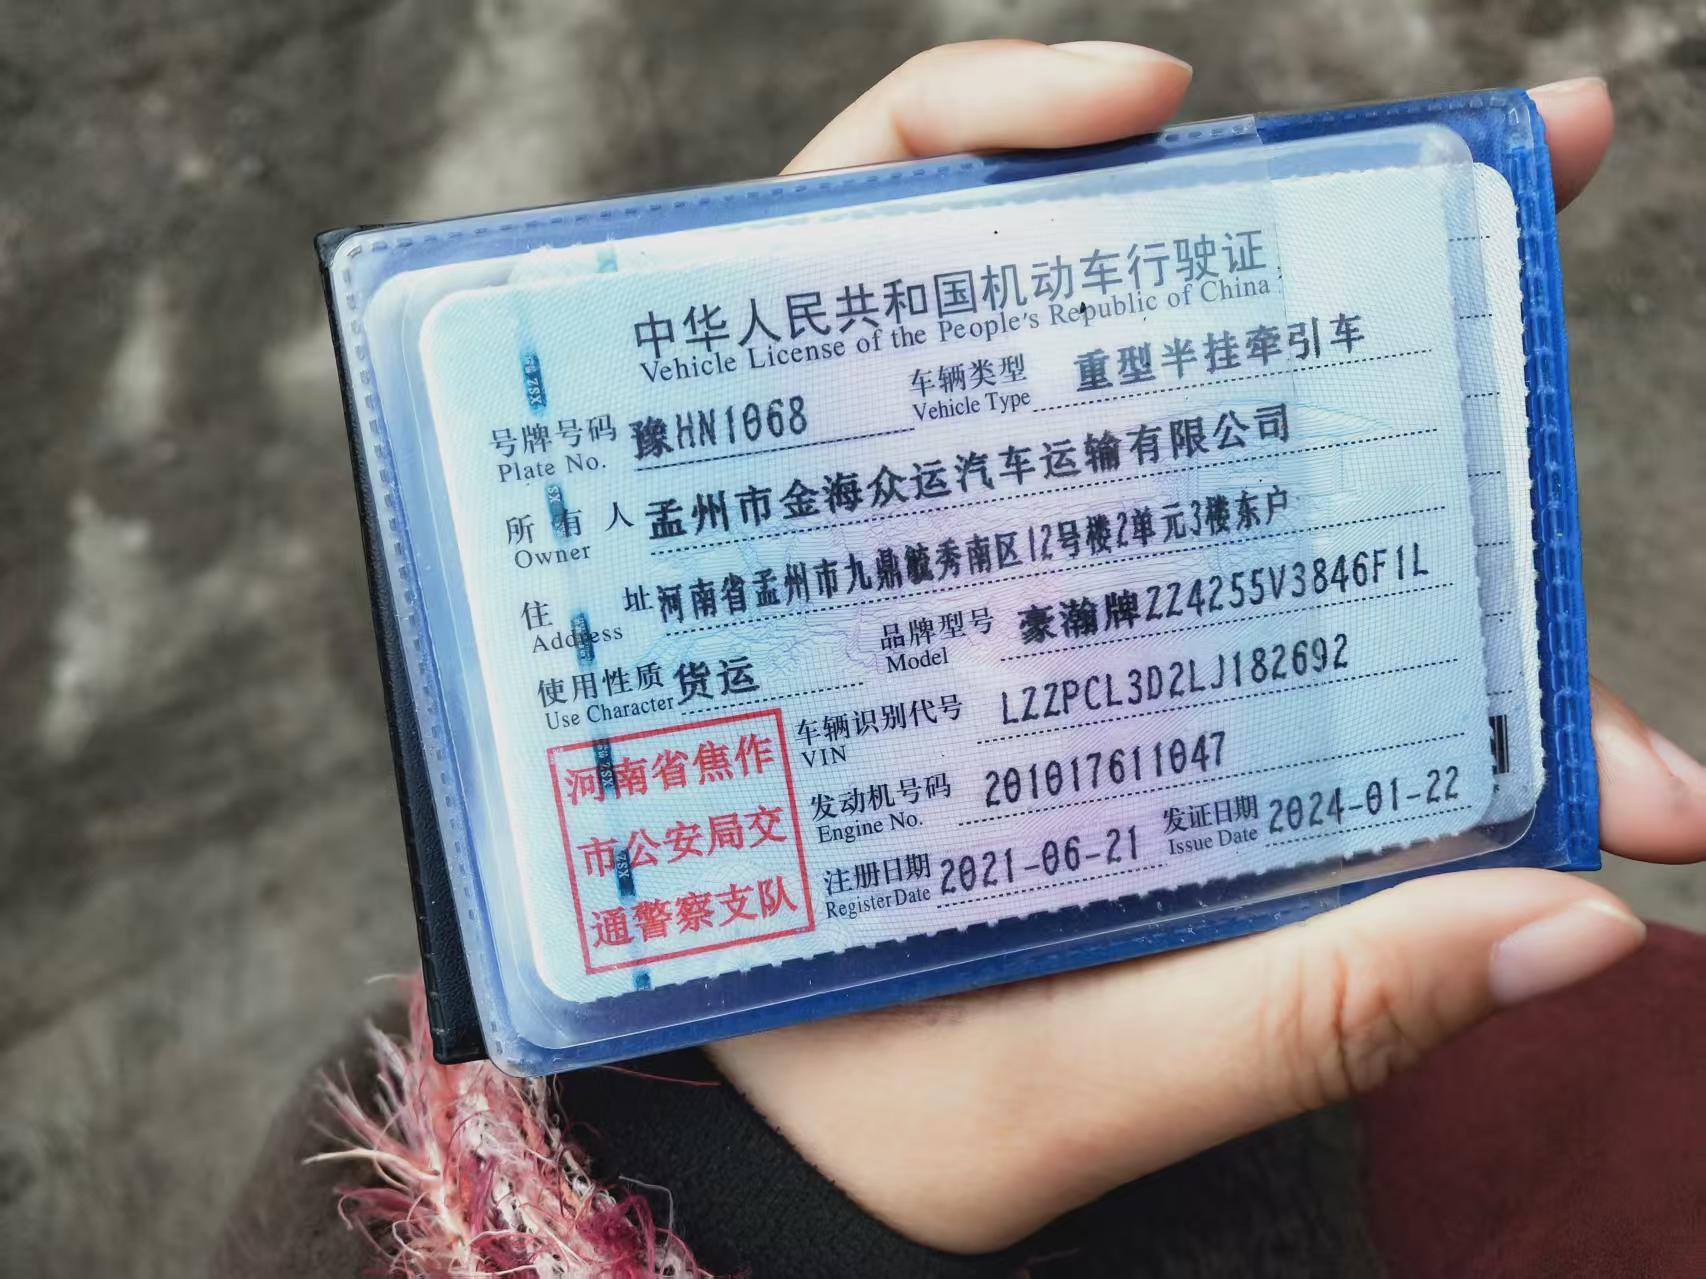 中华人民共和国机动车行驶证
Vehicle License of the People's Republic of China
号牌号码 豫HN1068 车辆类型 重型半挂牵引车
Plate No. Vehicle Type
所有人 孟州市金海众运汽车运输有限公司
Owner
住址 河南省孟州市九鼎毓秀南区12号楼2单元3楼东户
Address
使用性质 货运 品牌型号 豪瀚牌ZZ4255V3846F1L
Use Character Model
车辆识别代号 LZZPCL3D2LJ182692
VIN
发动机号码 201017611047
Engine No.
注册日期 2021-06-21 发证日期 2024-01-22
Register Date Issue Date
河南省焦作
市公安局交
通警察支队
XSZ
XSZ
XSZ